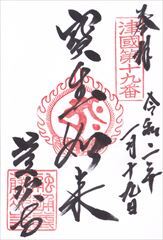 奉拝
津國第十九番
令和二年
一月十九日
寶生如来
藤次寺